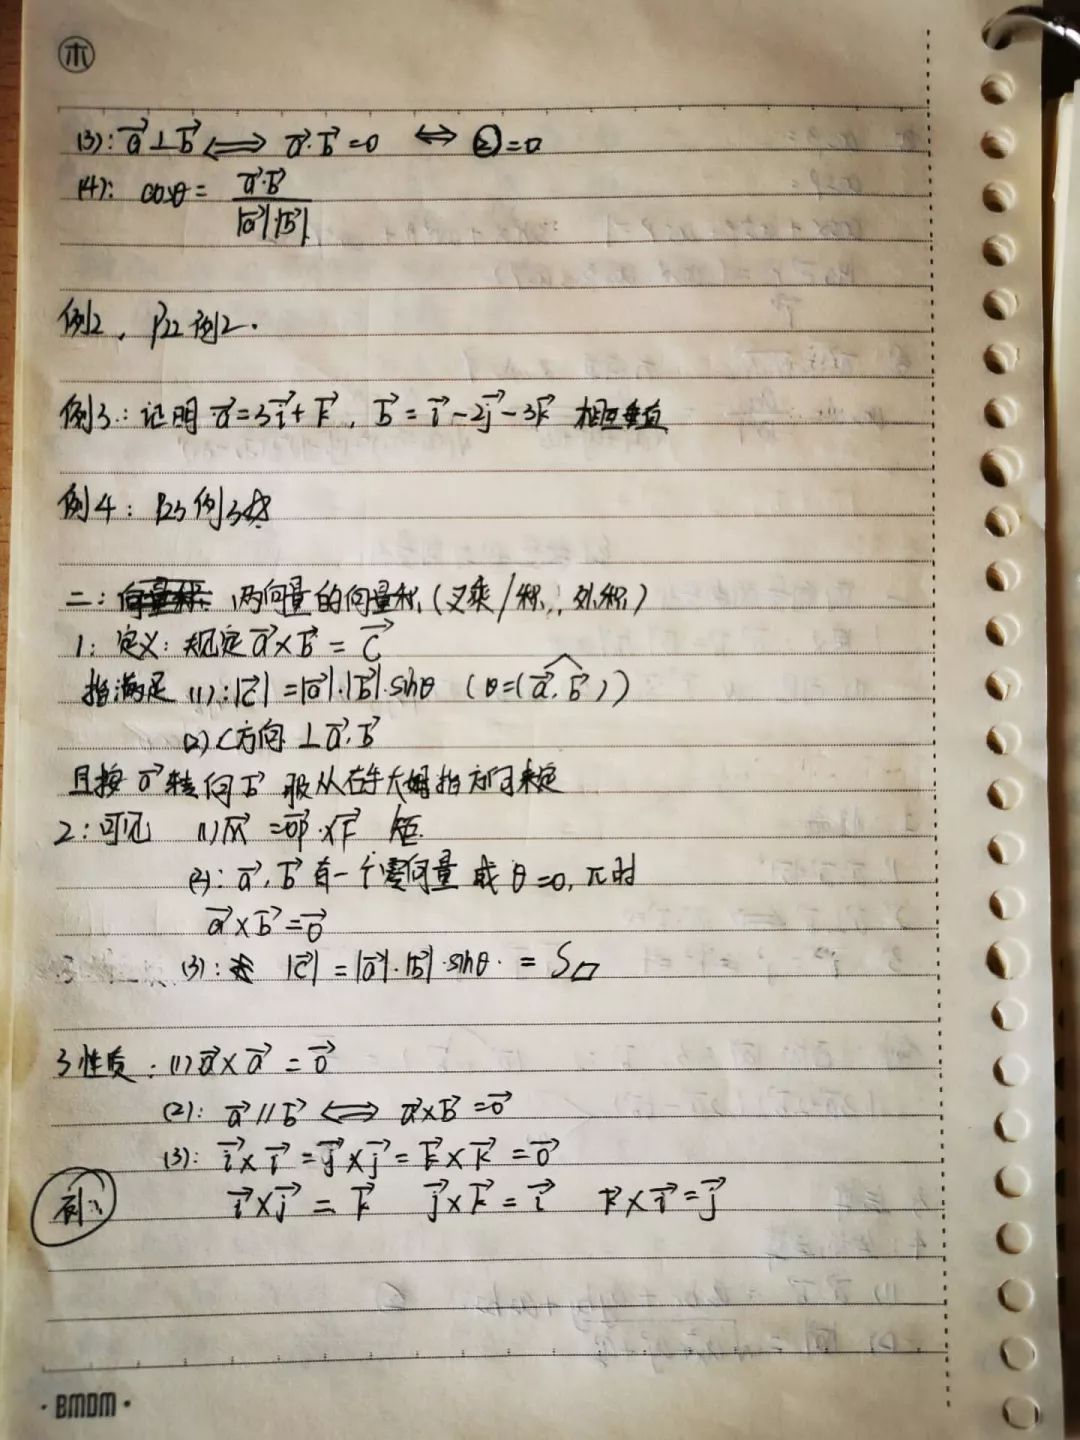 木
(3): a⃗⊥b⃗ ⟺ a⃗·b⃗=0 ⟺ ②=0
(4): cosθ = a⃗·b⃗ / |a⃗|·|b⃗|
例2, P22 例2.
例3: 证明 a⃗=3i⃗+k⃗, b⃗=i⃗-2j⃗-3k⃗ 相互垂直
例4: P23 例3
二: 两向量的向量积 (叉乘/积, 外积)
1: 定义: 规定 a⃗×b⃗ = c⃗
指满足 (1): |c⃗|=|a⃗|·|b⃗|·sinθ (θ=(a⃗,b⃗))
(2) c方向 ⊥a⃗,b⃗
且按 a⃗ 转向 b⃗ 服从右手大姆指方向来定
2: 可见 (1) M⃗ = OP⃗×F⃗ 矩
(2): a⃗, b⃗ 有一个零向量 或 θ=0, π时
a⃗×b⃗=0⃗
(3): |c⃗| = |a⃗|·|b⃗|·sinθ = S▱
3 性质: (1) a⃗×a⃗ = 0⃗
(2): a⃗//b⃗ ⟺ a⃗×b⃗=0⃗
(3): i⃗×i⃗=j⃗×j⃗=k⃗×k⃗=0⃗
补: i⃗×j⃗ = k⃗ j⃗×k⃗ = i⃗ k⃗×i⃗=j⃗
· BMDM ·